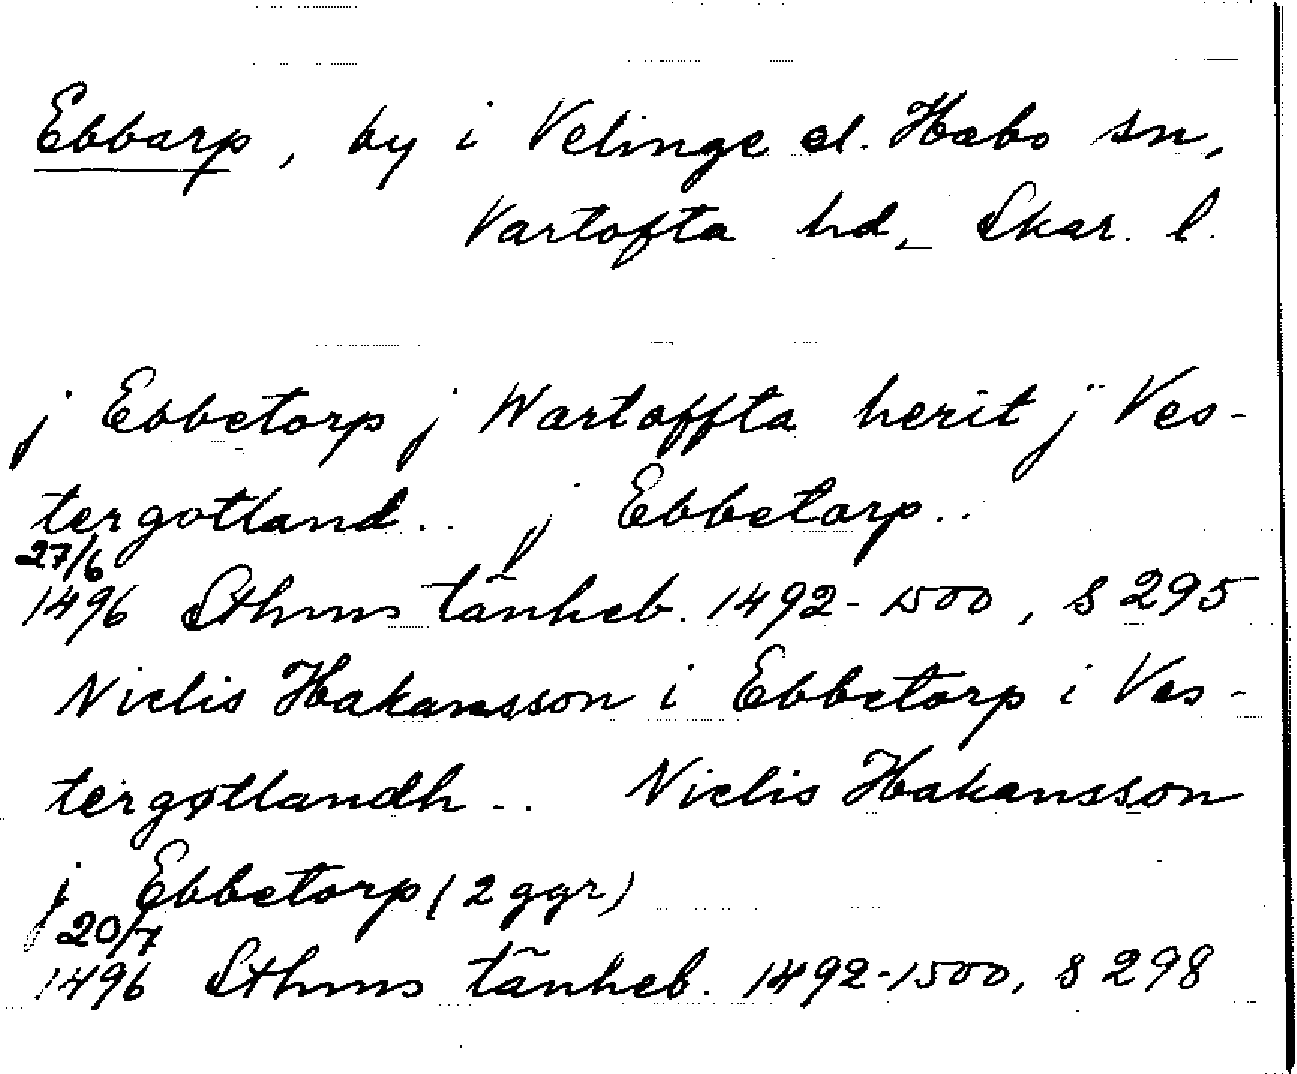 Ebbarp, by i Velinge el. Habo sn,
Vartofta hd, Skar. l.
j Ebbetorp j Wartoffta herit j Ves-
tergotland.. j Ebbetorp..
27/6
1496 Sthms tänkeb. 1492-1500, s 295
Niclis Hakansson i Ebbetorp i Ves-
tergøtlandh.. Niclis Hakansson
j Ebbetorp (2 ggr)
20/7
1496 Sthms tänkeb. 1492-1500, s 298